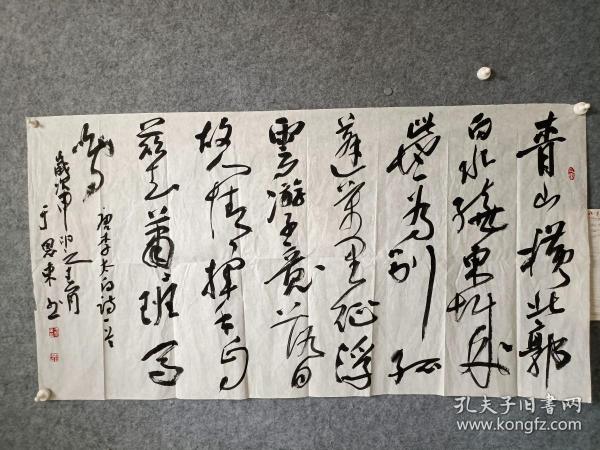 青山横北郭
白水绕東城
此地一为别孤
蓬萬里征浮
雲游子意落日
故人情揮手自
兹去蕭蕭班马
鸣
唐李太白诗一首
歲次甲申
于思東书
孔夫子旧書网
www.kongfz.com